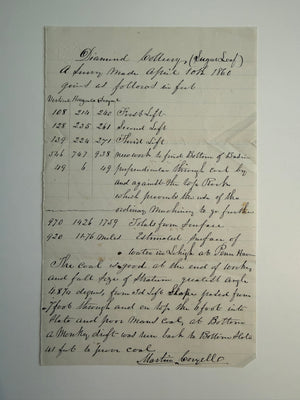 Diamond Colliery, (Sugar Loaf)
A Survy Made April 10th 1860
given as follows in feet
108 214 240 First Lift
128 235 261 Second Lift
139 224 271 Third Lift
546 747 938 new work to find Bottom of Basin
49 6 49 perpendicular through coal by
and against the top Rock
which prevents the use of the
ordinary Machinery to go further
970 1426 1759 Total from Surface
920 1176 Estimated surface of
water in Lehigh at Penn Haven
The coal is good at the end of work
and full Size of Stratum greatest angle
from 3d Lift Slope passed from
7 foot through and on top the 6 foot into
Slate and poor Mans coal, at Bottom
a Monkey drift was run back to Bottom Slate
feet to prove coal
Martin